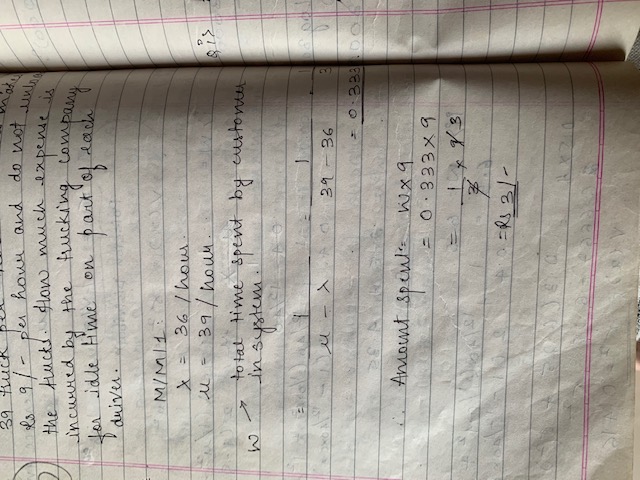 39 truck per
Rs 9/- per hour and do not unlo
the trucks. How much expense is
incurred by the trucking company
for idle time on part of each
driver.
M/M/1:
λ = 36 / hour.
μ = 39 / hour.
W → total time spent by customer
in system.
= 1 / μ - λ = 1 / 39 - 36 = 1 / 3
= 0.333
∴ Amount spent = W × 9
= 0.333 × 9
= 1 / 3 × 9 3
= Rs 3/-
Q i>